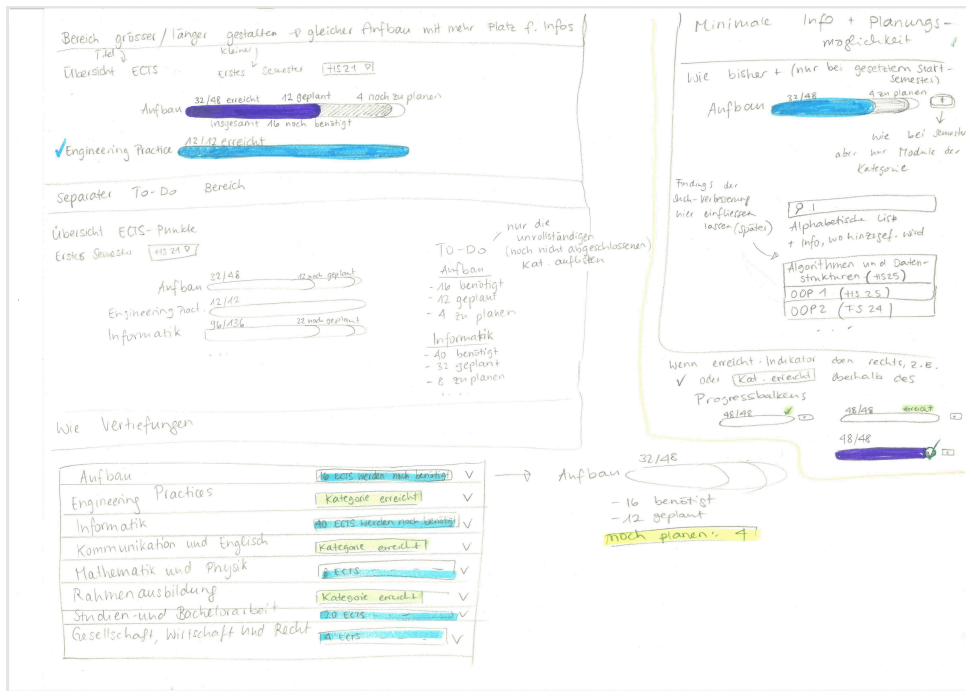 Bereich grösser/länger gestalten → gleicher Aufbau mit mehr Platz f. Infos
Titel
kleiner
Übersicht ECTS
Erstes Semester HS21
32/48 erreicht 12 geplant 4 noch zu planen
Aufbau
Insgesamt 16 noch benötigt
12/12 erreicht
✓ Engineering Practice
Separater To-Do Bereich
Übersicht ECTS-Punkte
Erstes Semester HS21
32/48 12 noch geplant
Aufbau
12/12
Engineering Pract.
96/136 22 noch geplant
Informatik
...
TO-DO
nur die
unvollständigen
(noch nicht abgeschlossenen)
Kat. auflisten
Aufbau
- 16 benötigt
- 12 geplant
- 4 zu planen
Informatik
- 40 benötigt
- 32 geplant
- 8 zu planen
....
Wie Vertiefungen
Aufbau 16 ECTS werden noch benötigt
Engineering Practices Kategorie erreicht
Informatik 40 ECTS werden noch benötigt
Kommunikation und Englisch Kategorie erreicht
Mathematik und Physik 8 ECTS
Rahmenausbildung Kategorie erreicht
Studien- und Bachelorarbeit 20 ECTS
Gesellschaft, Wirtschaft und Recht 4 ECTS
→ Aufbau 32/48
- 16 benötigt
- 12 geplant
noch planen: 4
Minimale Info + Planungs-
möglichkeit
Wie bisher + (nur bei gesetztem Start-
semester)
32/48 4 zu planen
Aufbau +
wie bei Semester
aber nur Module der
Kategorie
Findings der
Such-Verbesserung
hier einfliessen
lassen (später)
Alphabetische Liste
+ Info, wo hinzugef. wird
Algorithmen und Daten-
strukturen (HS25)
OOP 1 (HS25)
OOP2 (FS24)
...
Wenn erreicht: Indikator oben rechts, z.B.
✓ oder Kat. erreicht oberhalb des
Progressbalkens
48/48 ✓
48/48 erreicht
48/48 ✓